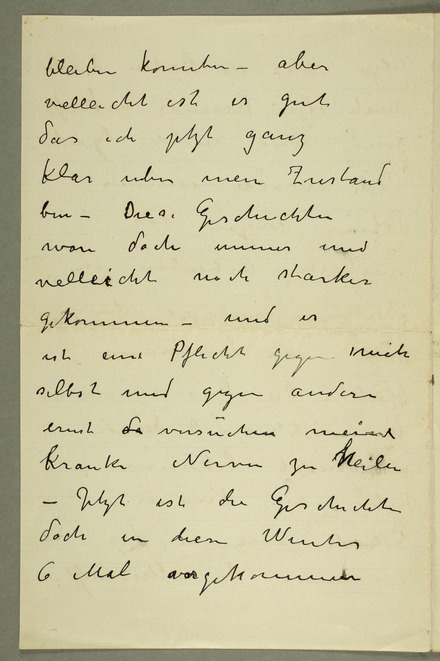 bleiben konnten – aber
vielleicht ist es gut
das ich jetzt ganz
klar uber mein Zustand
bin – Diese Geschichten
waren doch immer und
vielleicht noch starker
gekommen – und es
ist eine Pflicht gegen mich
selbst und gegen andern
ernst zu versuchen meine
Kranke Nerven zu heilen
– Jetzt ist die Geschichte
doch in diesen Winter
6 Mal vorgekommen